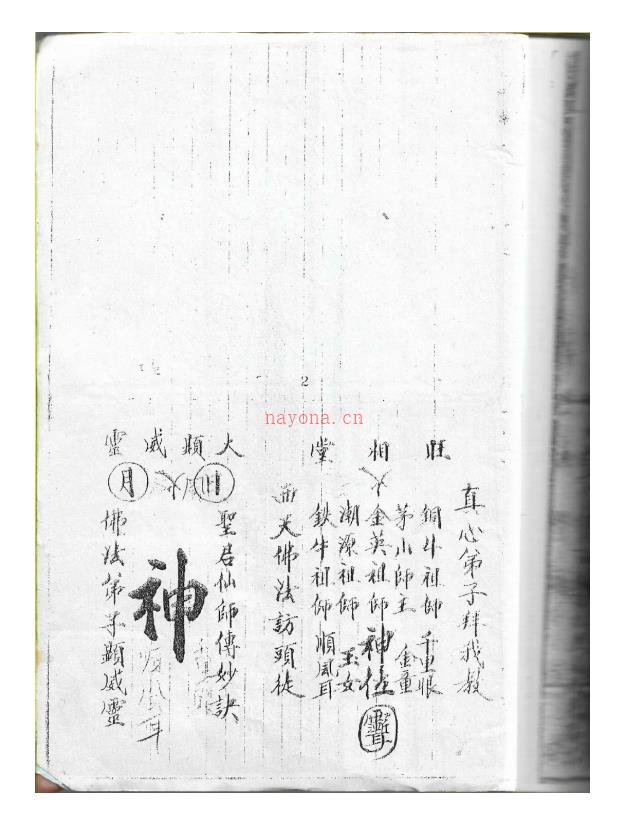 2
nayona.cn
真心弟子拜我教
旺 相 堂
銅牛祖師 千里眼
茅山師主 金童
金英祖師 神位
潮源祖師 玉女
鉄牛祖師 順風耳
天佛法訪頭徒
大顯威靈
聖君仙師傳妙訣
日 月
神
千里眼
順風耳
佛法弟子顯威靈